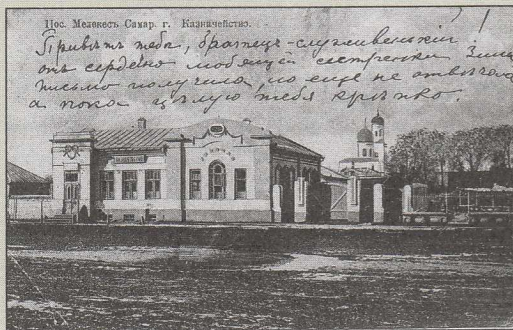 Пос. Мелекесъ Самар. г. Казначейство.
Привѣтъ тебѣ, братецъ-служивенькій!
отъ сердечно любящей сестренки Зины
письмо получила, но еще не отвѣчала
а пока цѣлую тебя крѣпко.